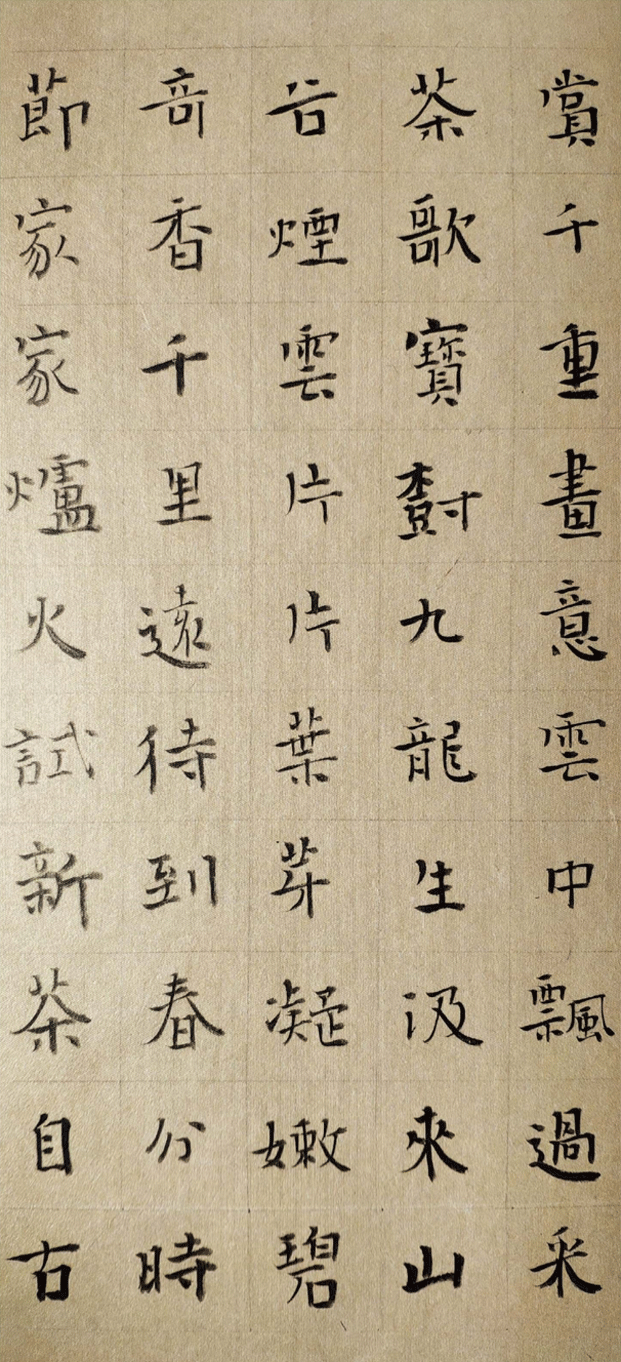 賞千重畫意雲中飄過采
茶歌寶樹九龍生汲來山
谷煙雲片片葉芽凝嫩碧
奇香千里遠待到春分時
節家家爐火試新茶自古